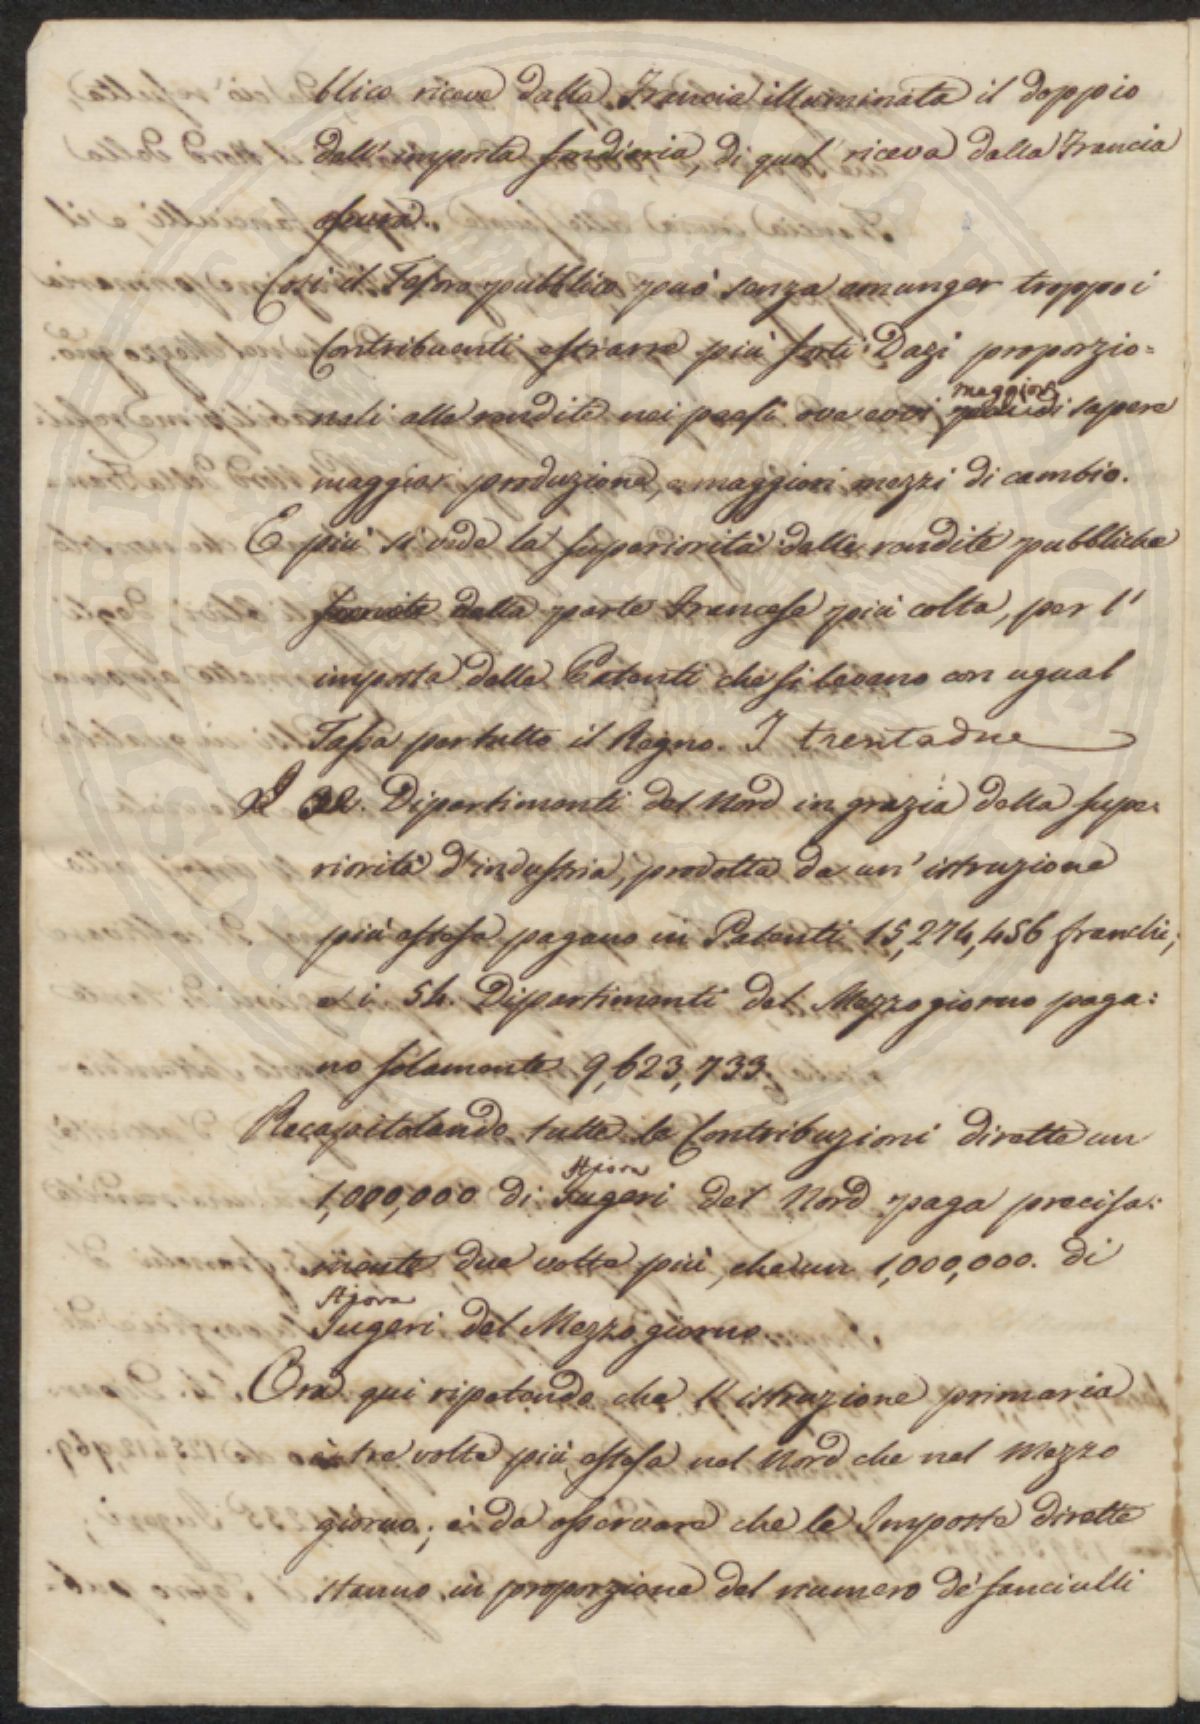 blico riceve dalla Francia illuminata il doppio
dell' imposta fondiaria, di quel riceva dalla Francia
oscura.
Così il Tesoro pubblico può senza emunger troppo i
Contribuenti estrarre più forti Dazj proporzio=
nali alle rendite nei paesi ove evvi maggior di sapere
maggior produzione, e maggiori mezzi di cambio.
E più si vede la superiorità delle rendite pubbliche
fornite dalla parte francese più colta, per l'
imposta delle Patenti che si levano con ugual
Tassa per tutto il Regno. I trentadue
I 32. Dipartimenti del Nord in grazia della supe:
riorità d'industria, prodotta da un' istruzione
più estesa pagano in Patenti 15,274,456 franchi;
e i 54. Dipartimenti del Mezzo giorno paga:
no solamente 9,623,733.
Recapitolando tutte le Contribuzioni dirette un
Stjora
1,000,000 di Jugeri del Nord paga precisa:
mente due volte più, che un 1,000,000. di
Stjora
Jugeri del Mezzo giorno.
Ora qui ripetendo che l'istruzione primaria
è tre volte più estesa nel Nord che nel Mezzo
giorno; è da osservare che le Imposte dirette
stanno in proporzione del numero de' fanciulli